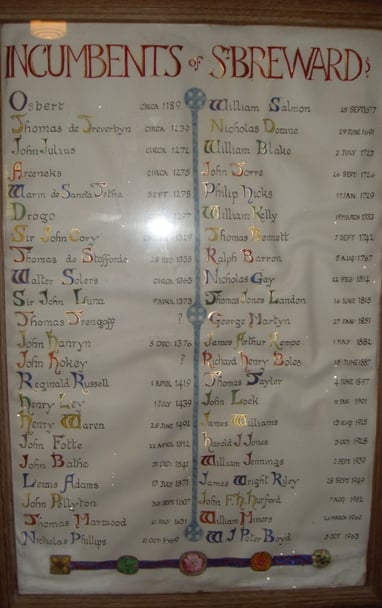 INCUMBENTS OF ST. BREWARD
Osbert CIRCA 1189
Thomas de Treverbyn CIRCA 1239
John Julius CIRCA 1272
CIRCA 1275
Warin de Sancta Tetha SEPT. 1278
Drogo
Sir John Cory
Thomas de Stafforde DEC 1335
Walter Solers CIRCA 1363
Sir John Luna 9 APR 1373
Thomas Trengoff ?
John Hanryn 5 DEC 1376
John Hokey ?
Reginald Russell 1 APRIL 1419
Henry Ley 1 JULY 1439
Henry Waren 28 JUNE 1492
John Fotte 22 APRIL 1512
John Bathe 1541
Lewis Adams 17 JULY 1571
John Pollyton 30 SEPT 1607
Thomas Marwood JULY 1631
Nicholas Phillips 21 OCT
William Salmon 25 SEPT 1677
Nicholas Donne 29 JUNE 1691
William Blake 2 JULY 1723
John Torre 26 SEPT 1726
Philip Hicks 17 JAN. 1729
William Kelly 19 MARCH 1733
Thomas Bennett 7 SEPT 1742
Ralph Barron 5 AUG 1767
Nicholas Gay 22 FEB 1814
Thomas Jones Landon 16 JUNE 1815
George Martyn 27 JAN 1851
James Arthur Kempe 1 MAY 1882
Richard Henry Boles 18 JUNE 1887
Thomas Taylor JUNE 1897
John Lock JAN 1901
James Williams 13 AUG 1925
Harold J. Jones 3 OCT 1928
William Jennings 2 SEPT 1939
James Wright Riley 23 SEPT 1949
John F.H. Hurford 7 AUG 1952
William Minors 26 MARCH 1962
W J Peter Boyd 5 OCT 1963